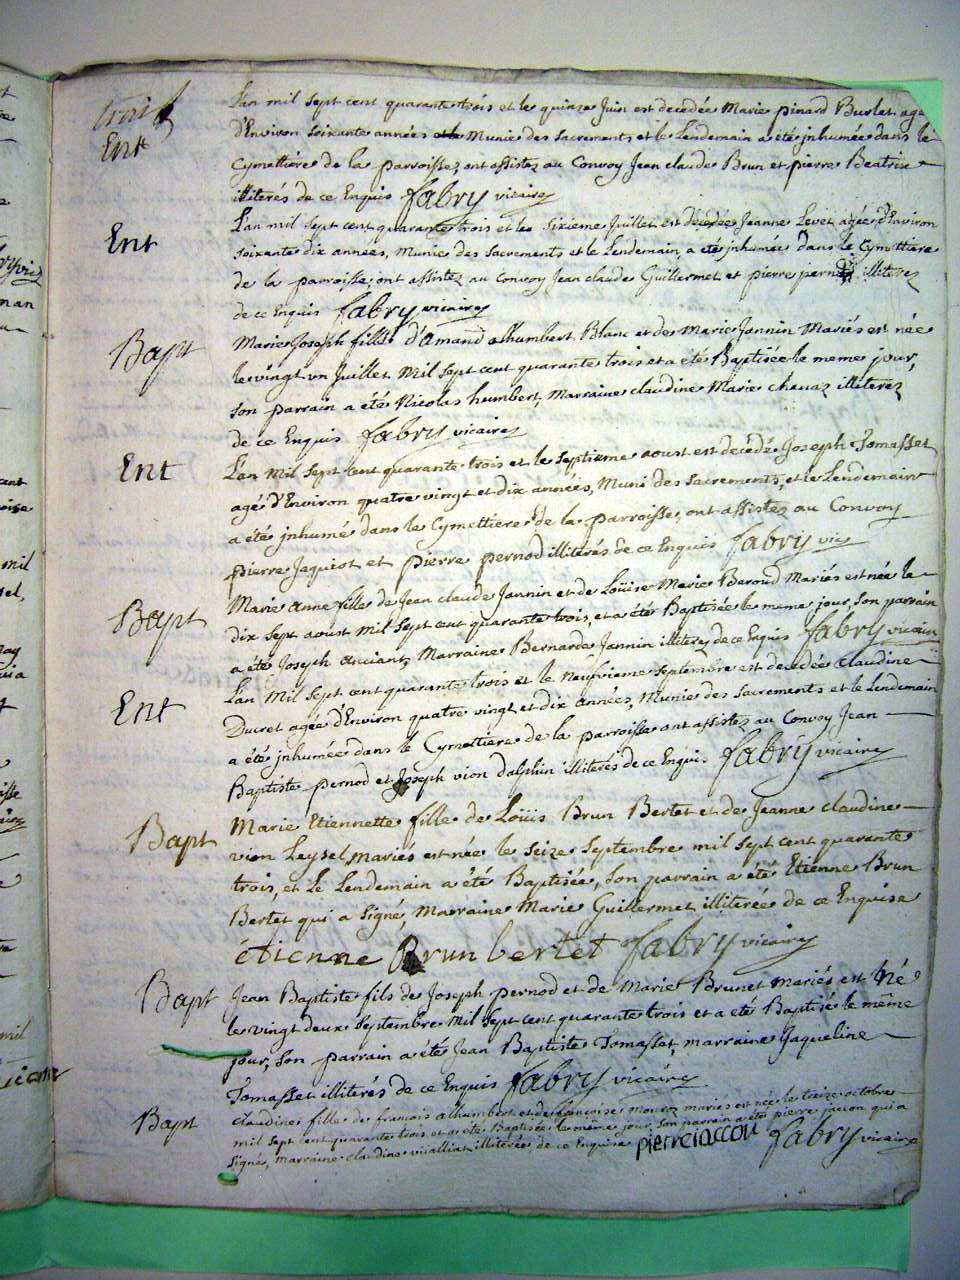 trois
Ent
L'an mil sept cent quarante trois et le quinze Juin est decedée Marie pinard Burlet agée
d'Environ soixante années Munie des sacrements, et le Lendemain a été jnhumée dans le
Cymettiere de la parroisse, ont assistez au Convoy Jean claude Brun et pierre Beatrix
illiterés de ce Enquis fabry vicaire
Ent
L'an mil sept cent quarante trois et le sixieme Juillet est decedée Jeanne Levet agée d'Environ
soixante dix années, Munie des sacrements et le Lendemain, a eté jnhumée dans le Cymettiere
de la parroisse, ont assistez au convoy Jean claude Guillermet et pierre illiterez
de ce Enquis fabry vicaire
Bapt
Marie Joseph fille d'amand althumbert Blanc et de Marie Jannin Mariés est née
le vingt un Juillet Mil sept cent quarante trois et a eté Baptisée le meme jour,
son parrain a été Nicolas humbert, Marraine claudine Marie chavaz illiterez
de ce Enquis fabry vicaire
Ent
L'an Mil sept cent quarante trois et le septieme aoust est decedé Joseph Tomasset
agé d'Environ quatre vingt et dix années, Muni des sacrements, et le Lendemain
a été jnhumé dans le Cymettiere de la parroisse, ont assistez au Convoy
pierre Jaquiot et pierre pernod illiterés de ce Enquis fabry vic
Bapt
Marie anne fille de Jean claude Jannin et de Loüise Marie Baroud Mariés est née le
dix sept aoust Mil sept cent quarante trois, et a été Baptisée le meme jour, son parrain
a été Joseph anciant, Marraine Bernarde Jannin illiterez de ce Enquis fabry vicaire
Ent
L'an Mil sept cent quarante trois et le Neufvieme septembre est decedée claudine
Ducret agée d'Environ quatre vingt et dix années, Munie des sacrements et le Lendemain
a été jnhumée dans le Cymettiere de la parroisse ont assistez au Convoy Jean
Baptiste pernod et Joseph vion dalphin illiterés de ce Enquis fabry vicaire
Bapt
Marie Etiennette fille de Loüis Brun Bertet et de Jeanne claudine
vion Leysel, mariés est née le seize septembre mil sept cent quarante
trois, et Le Lendemain a été Baptisée, son parrain a été Etienne Brun
Bertet qui a signé, Marraine Marie Guillermet illiterée de ce Enquise
étienne Brun bertet fabry vicaire
Bapt
Jean Baptiste fils de Joseph pernod et de Marie Brunet mariés est Né
le vingt deux septembre Mil sept cent quarante trois et a eté Baptisé le même
jour, son parrain a été Jean Baptiste Tomasset, marraine Jaqueline
Tomasset illiterés de ce Enquis fabry vicaire
Bapt
claudine fille de françois althumbert et de françoise mariés est née le treize octobre
mil sept cent quarante trois et a été Baptisée le même jour, son parrain a été pierre jacon qui a
signé, marraine claudine illiterée de ce Enquise pierre iaccou fabry vicaire